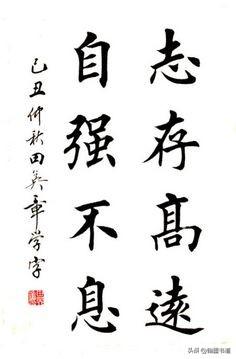 志存高遠
自强不息
己丑仲秋田英章学字
头条@翰墨书道